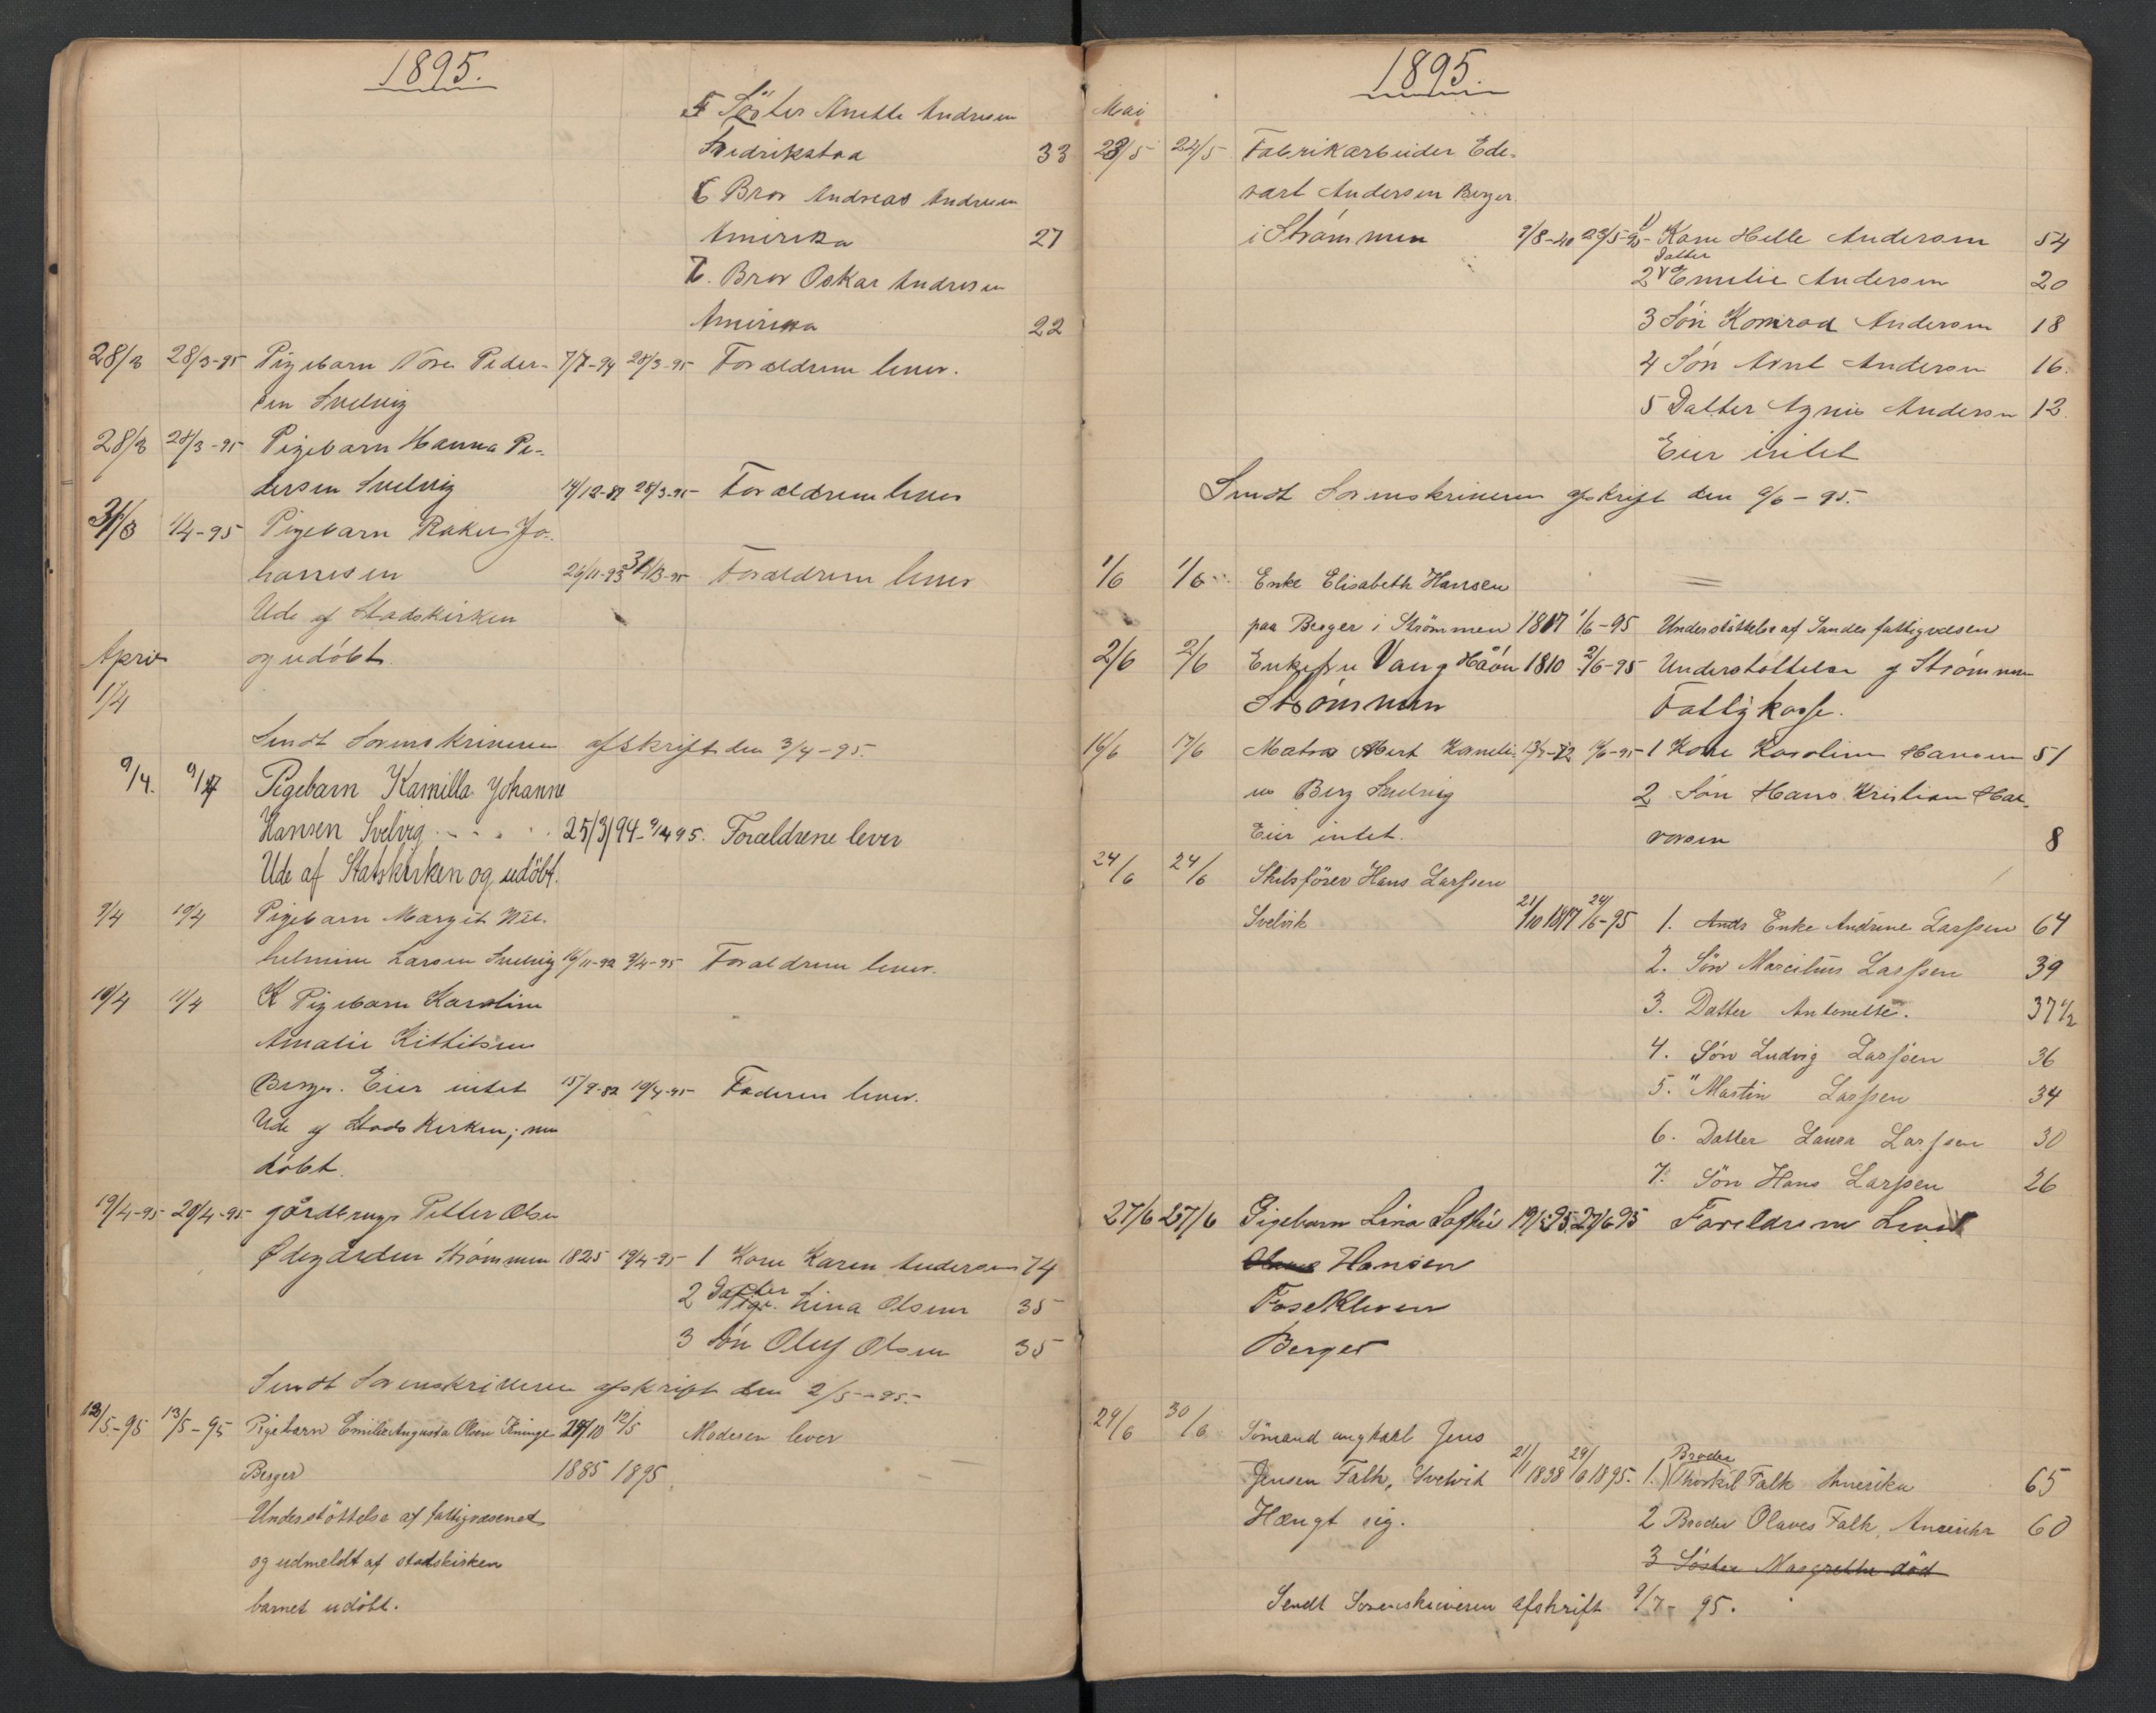 1895.
5 Söster Anette Andresen
Fredrikstad 33
6 Bror Andreas Andresen
Amerika 27
7. Bror Oskar Andresen
Amerika 22
28/3 28/3-95 Pigebarn Tora Peder- 7/7-94 28/3-95 Forældrene lever.
sen Svelvig
28/3 28/3-95 Pigebarn Hanna Pe-
dersen Svelvig 14/12-87 28/3-95 Forældrene lever
31/3 1/4-95 Pigebarn Rakel Jo-
hannesen 26/11-93 31/3-95 Forældrene lever
Ude af Stadskirken
April og udöbt.
1/4
Sendt Sorenskriveren afskrift den 3/4-95.
9/4. 9/4 Pigebarn Kamilla Johanne
Hansen Svelvig 25/3/94 - 9/4 95. Forældrene lever
Ude af Statskirken og udöbt.
9/4 10/4 Pigebarn Margit Wil-
helmine Larsen Svelvig 16/11-92 9/4-95 Forældrene lever.
10/4 11/4 Pigebarn Karoline
Amalie Kittilsen
Berger. Eier intet 15/9-82 10/4-95 Faderen lever.
Ude af Stadskirken, men
döbt.
19/4-95 20/4-95 gårdbruger Petter Olsen
Ødegården Strømmen 1825 19/4-95 1 Kone Karen Andersen 74
2 Datter Pige. Lina Olsen 35
3 Sön Oluf Olsen 35
Sendt Sorenskriveren afskrift den 2/5-95.
12/5-95 13/5-95 Pigebarn Emilie Augusta Olsen 10 12/5 Moderen lever
Berger 1885 1895
Understöttelse af fattigvæsenet
og udmeldt af stadskirken
barnet udöbt.
1895.
Mai
23/5 24/5 Fabrikarbeider Ede-
vart Andersen Berger
i Strömmen 9/8-40 23/5-95 1) Kone Helle Andersen 54
2 Datter Emilie Andersen 20
3 Sön Konrad Andersen 18
4 Sön Arnt Andersen 16.
5 Datter Agnes Andersen 12.
Eier intet
Sendt Sorenskriveren afskrift den 6/6-95.
1/6 1/6 Enke Elisabeth Hansen
paa Berger i Strömmen 1817 1/6-95 Understöttelse af Sandes fattigvæsen
2/6 2/6 Enkefru Vang Håön 1810 2/6-95 Understöttelse af Strömmen
Strömmen Fattigkasse.
16/6 17/6 Matros 16/6-95 1 Kone Karoline Hansen 51
Berg Svelvig 2 Sön Hans Kristian Hal-
Eier intet. vorsen 8
24/6 24/6 Skibsförer Hans Larssen
Svelvik 21/10 1817 24/6-95 1. Enke Andrine Larssen 64
2. Sön Marcilius Larssen 39
3. Datter Antonette. 37 1/2
4. Sön Ludvig Larssen 36
5. " Martin Larssen 34
6. Datter Laura Larssen 30
7. Sön Hans Larssen 26
27/6 27/6 Pigebarn Lina Sofhie 19/5 95 27/6 95 Foreldrene Lever
Hansen
Fosekleven
Berger
29/6 30/6 Sömand ungkarl Jens
Jensen Falk, Svelvik 21/11 1838 29/6 1895. 1.) Broder Thorkil Falk Amerika 65
Hængt sig. 2 Broder Olaves Falk, Amerika 60
3 Söster Margrethe död
Sendt Sorenskriveren afskrift 9/7-95.